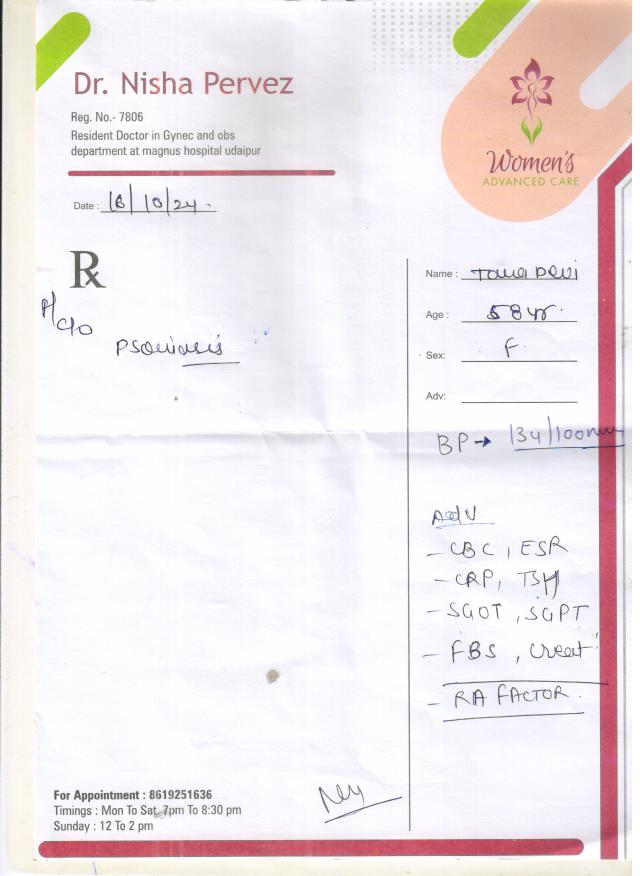 Dr. Nisha Pervez
Reg. No.- 7806
Resident Doctor in Gynec and obs
department at magnus hospital udaipur
Women's
ADVANCED CARE
Date : 18/10/24.
Rx
Psoriasis
Name : Devi
Age : 58 yr.
Sex: F.
Adv:
BP → 134/100mm
Adv
- CBC, ESR
- CRP, TSH
- SGOT, SGPT
- FBS, Creat
- RA FACTOR.
For Appointment : 8619251636
Timings : Mon To Sat, 7pm To 8:30 pm
Sunday : 12 To 2 pm